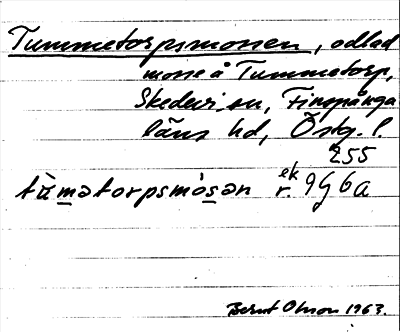 Tummetorpsmossen, odlad
mosse å Tummetorp,
Skedevi sn, Finspånga
läns hd, Östg. l.
255
tùmətorpsmòsən ek. r. 9G6a
Bernt Olson 1963.